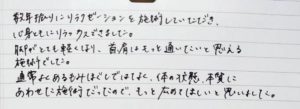 数年振りにリラクゼーションを施術していただき、
心身ともにリラックスできました。
脚がとても軽くなり、首肩はもっと通いたいと思える
施術でした。
通常よくあるもみほぐしではなく、体の状態、本質に
あわせた施術だったので、もっと広めてほしいと思いました。